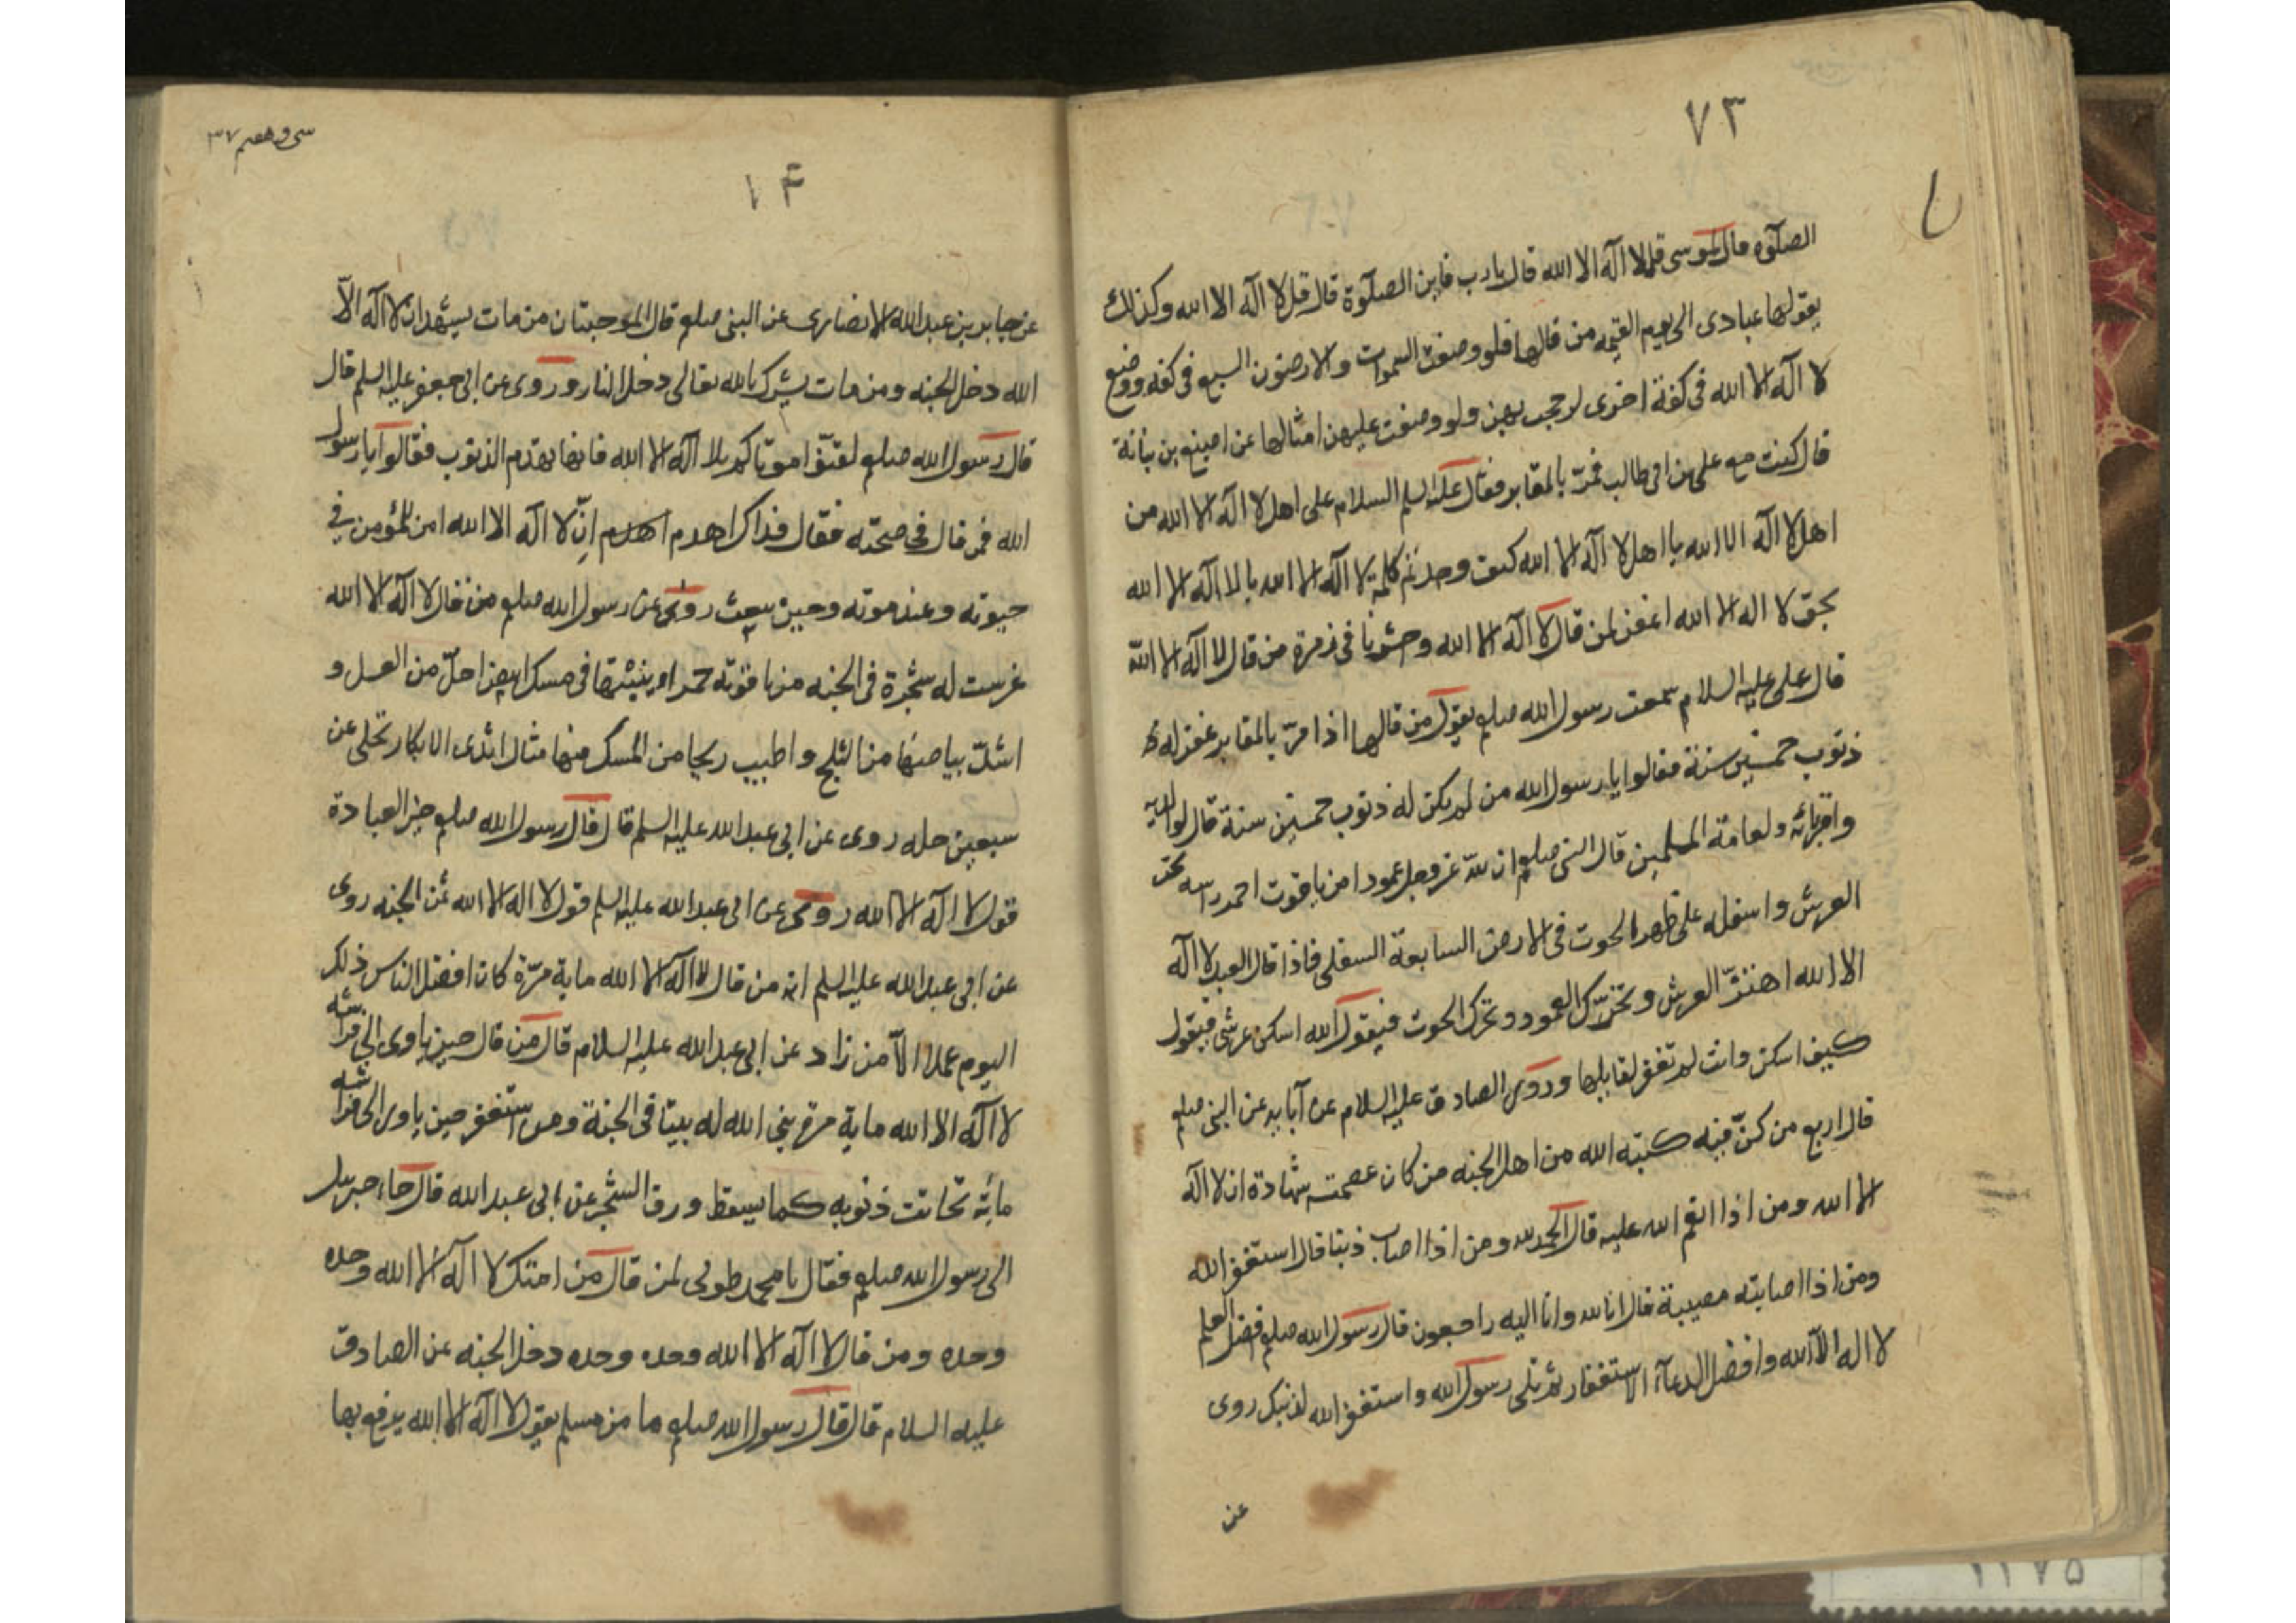 ٧٣
الصلوة قال یا موسی قل لا اله الا الله قال یا رب فاین الصلوة قال قل لا اله الا الله وکذلك
یقولها عبادی الی یوم القیمه من قالها فلو وضعت السموات والارضون السبع فی کفه ووضع
لا اله الا الله فی کفة اخری لرجحت بهن ولو وضعت علیهن امثالها عن اصبغ بن نباتة
قال کنت مع علی بن ابی طالب فمرّ بالمقابر فقال علیه السلم السلام علی اهل لا اله الا الله من
اهل لا اله الا الله یا اهل لا اله الا الله کیف وجدتم کلمة لا اله الا الله یا لا اله الا الله
بحق لا اله الا الله اغفر لمن قال لا اله الا الله واحشرنا فی زمرة من قال لا اله الا الله
قال علی علیه السلام سمعت رسول الله صلعم یقول من قالها اذا مرّ بالمقابر غفر له
ذنوب خمسین سنة فقالوا یا رسول الله من لم یکن له ذنوب خمسین سنة قال لوالدیه
واقربائه ولعامة المسلمین قال النبی صلعم ان لله عز وجل عمودا من یاقوت احمر راسه تحت
العرش واسفله علی ظهر الحوت فی الارض السابعة السفلی فاذا قال العبد لا اله
الا الله اهتزّ العرش وتحرّك العمود وتحرك الحوت فیقول الله اسکن عرشی فیقول
کیف اسکن وانت لم تغفر لقایلها وروی الصادق علیه السلام عن آبایه عن النبی صلعم
قال اربع من کنّ فیه کتبه الله من اهل الجنه من کان عصمته شهادة ان لا اله
الا الله ومن اذا انعم الله علیه قال الحمد لله ومن اذا اصاب ذنبا قال استغفر الله
ومن اذا اصابته مصیبة قال انا لله وانا الیه راجعون قال رسول الله صلعم افضل العلم
لا اله الا الله وافضل الدعآء الاستغفار ثم تلی رسول الله واستغفر الله لذنبك روی
عن
سی و هفتم ٣٧
١۴
عن جابر بن عبدالله الانصاری عن النبی صلعم قال الموجبتان من مات یشهد ان لا اله الّا
الله دخل الجنه ومن مات یشرك بالله تعالی دخل النار وروی عن ابی جعفر علیه السلم قال
قال رسول الله صلعم لقنّوا موتاکم بلا اله الا الله فانها تهدم الذنوب فقالوا یا رسول
الله فمن قال فی صحته فقال فذاك اهدم اهدم انّ لا اله الا الله امن للمؤمن فی
حیوته وعند موته وحین یبعث روی عن رسول الله صلعم من قال لا اله الا الله
غرست له شجرة فی الجنه من یاقوته حمراء منبتها فی مسك ابیض احلی من العسل و
اشدّ بیاضا من الثلج واطیب ریحا من المسك فیها مثال اثدی الابکار تجلی عن
سبعین حله روی عن ابی عبدالله علیه السلم قال قال رسول الله صلعم خیر العبادة
قول لا اله الا الله روی عن ابی عبدالله علیه السلم قول لا اله الا الله ثمن الجنه روی
عن ابی عبدالله علیه السلم انه من قال لا اله الا الله مایة مرّة کان افضل الناس ذلك
الیوم عملا الّا من زاد عن ابی عبدالله علیه السلام قال من قال حین یاوی الی فراشه
لا اله الا الله مایة مرة بنی الله له بیتا فی الجنة ومن استغفر حین یاوی الی فراشه
مائة تحاتت ذنوبه کما یسقط ورق الشجر عن ابی عبدالله قال جاء جبریل
الی رسول الله صلعم فقال یا محمد طوبی لمن قال من امتك لا اله الا الله وحده
وحده ومن قال لا اله الا الله وحده وحده دخل الجنه عن الصادق
علیه السلام قال قال رسول الله صلعم ما من مسلم یقول لا اله الا الله یرفع بها